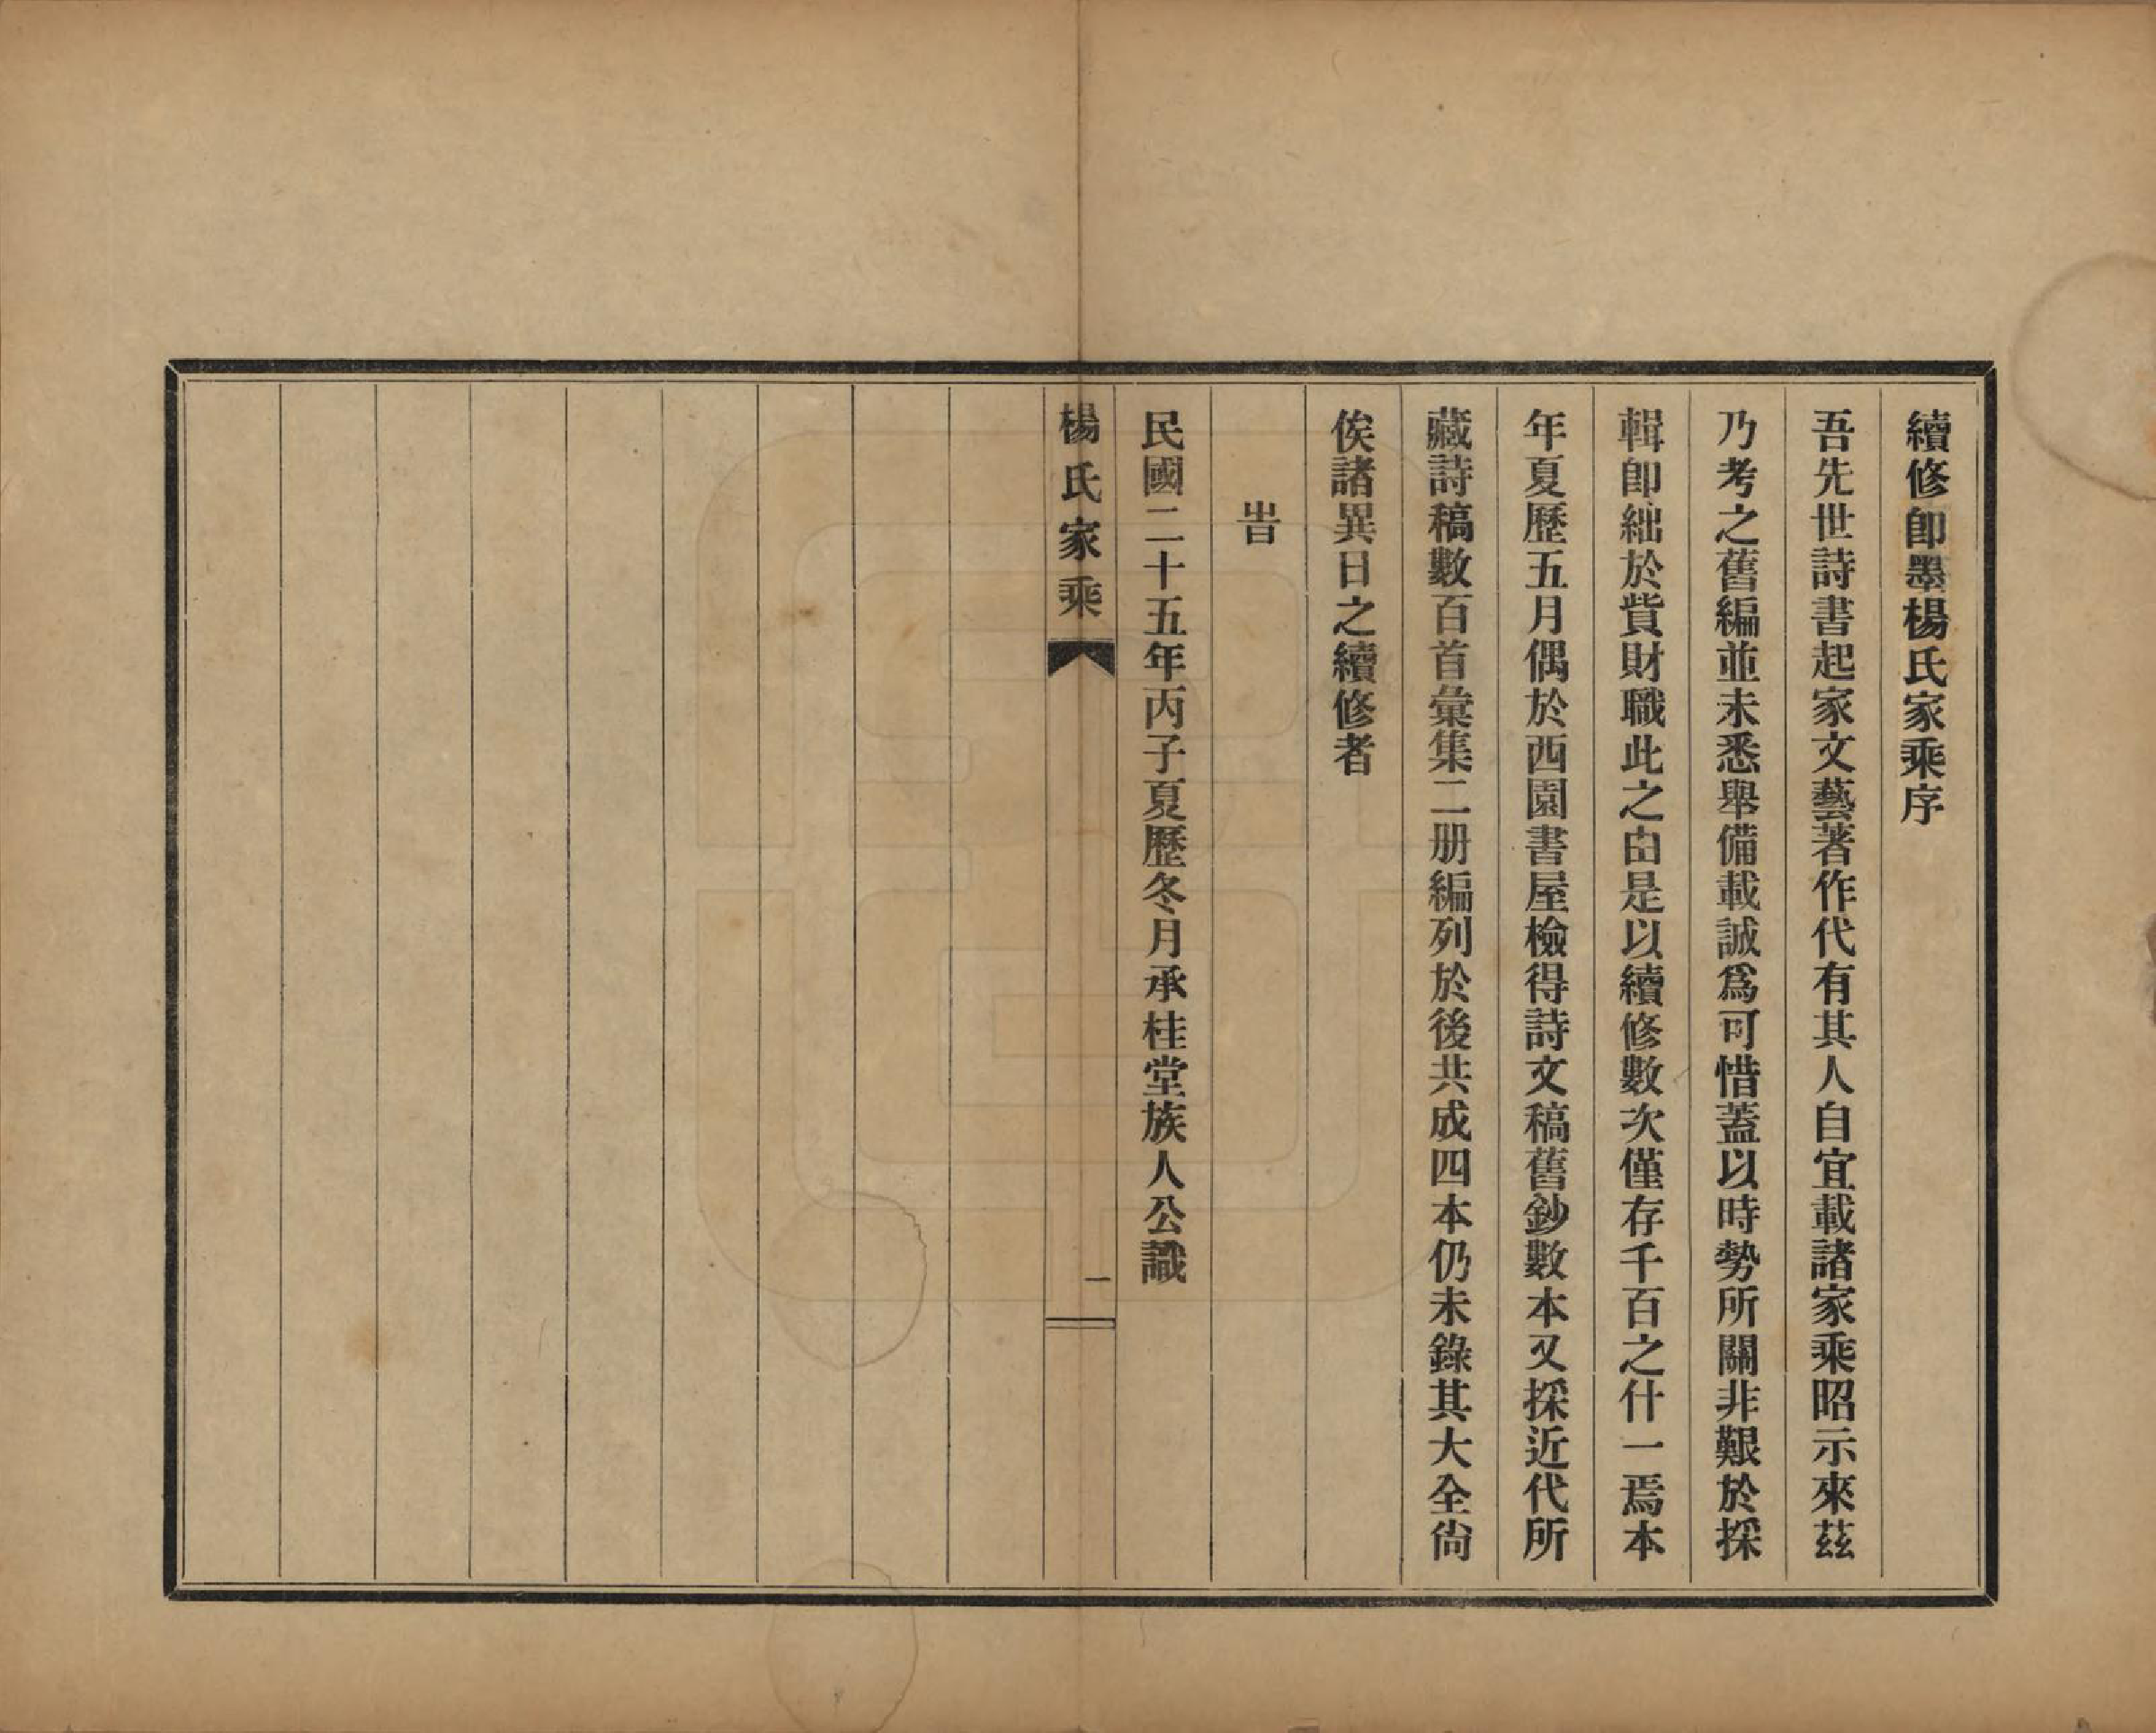 續修卽墨楊氏家乘序
吾先世詩書起家文藝著作代有其人自宜載諸家乘昭示來茲
乃考之舊編並未悉舉備載誠爲可惜蓋以時勢所關非艱於採
輯卽絀於貲財職此之由是以續修數次僅存千百之什一焉本
年夏歷五月偶於西園書屋檢得詩文稿舊鈔數本又採近代所
藏詩稿數百首彙集二册編列於後共成四本仍未錄其大全尙
俟諸異日之續修者
旹
民國二十五年丙子夏歷冬月承桂堂族人公識
楊氏家乘
一